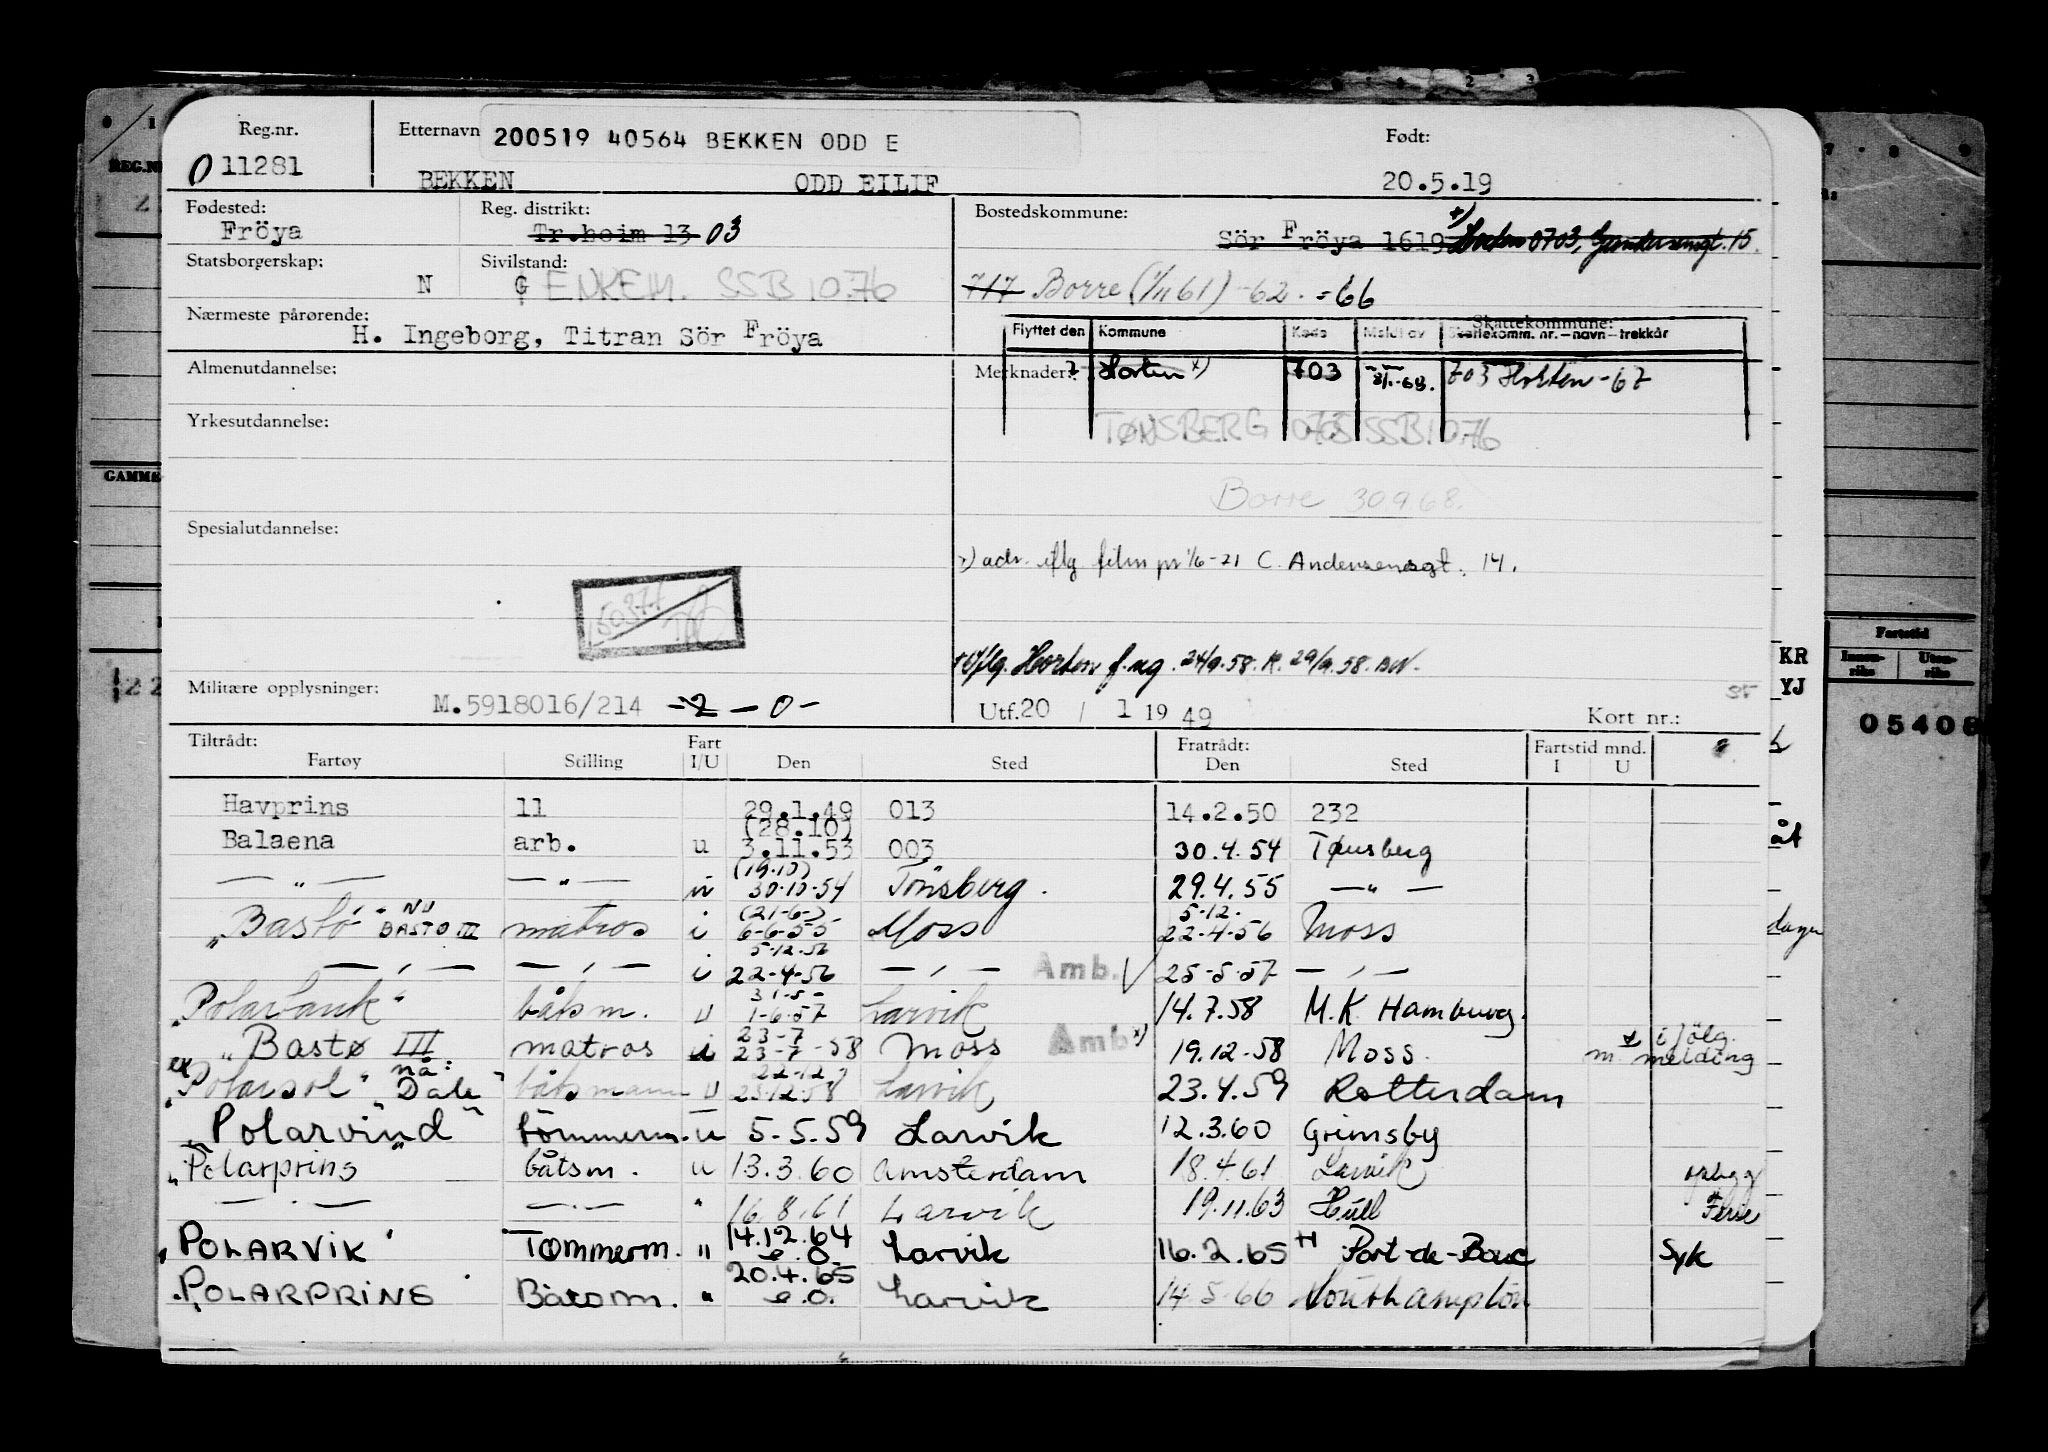 Reg.nr.
O 11281
Etternavn 200519 40564 BEKKEN ODD E
BEKKEN ODD EILIF
Født:
20.5.19
Fødested:
Fröya
Reg. distrikt:
Tr.heim 13 03
Bostedskommune:
Sör Fröya 1619 Horten 0703, Gundersensgt. 15.
Statsborgerskap:
N
Sivilstand:
G ENKEM. SSB 10.76
717 Borre (1/11 61) -62. =66
Nærmeste pårørende:
H. Ingeborg, Titran Sör Fröya
Skattekommune:
Flyttet den Kommune Kode Meldt av Skattekomm. nr. – navn – trekkår
Almenutdannelse:
Merknader: Horten x) 703 703 Horten -67
TØNSBERG SSB 10.76
Yrkesutdannelse:
Borre 30.9.68.
Spesialutdannelse:
x) adr. iflg. film pr 1/6-21 C. Andersensgt. 14.
50377
+ iflg. Horten f. mg. 24/9.58. K. 29/9.58. BN.
Militære opplysninger:
M.5918016/214 -2 - 0 -
Utf. 20 / 1 19 49
Kort nr.:
Tiltrådt: Fartøy Stilling Fart I/U Den Sted Fratrådt: Den Sted Fartstid mnd. I U
Havprins 11 29.1.49 013 14.2.50 232
Balaena arb. u (28.10) 3.11.53 003 30.4.54 Tønsberg
— " — — " — (19.10) 30.10.54 Tönsberg. 29.4.55 — " —
"Bastø" NU BASTØ III matros i (21-6-) 6-6-55 Moss 5-12- 22-4-56 Moss
— " — — " — i 5-12-56 22-4-56 — " — Amb. 25-5-57 — " —
"Polartank" båtsm. u 31-5- 1-6-57 Larvik 14.7.58 M.K. Hamburg.
"Bastø III matros i 23-7 23-7-58 Moss Amb x) 19.12-58 Moss. i følg. m. melding
ex "Polarsol" nå: "Dale" båtsmann u 22-12 23-12-58 Larvik 23.4.59 Rotterdam
"Polarvind" tömmerm. u 5.5.59 Larvik 12.3.60 Grimsby
"Polarprins" båtsm. u 13.3.60 Amsterdam 18.4.61 Larvik opbygg
— " — — " — " 16.8.61 Larvik 19.11.63 Hull Ferie
"POLARVIK" Tømmerm. " 14.12.64 e.o. Larvik 16.2.65 Port-de-Bouc Syk
"POLARPRINS Båtsm. " 20.4.65 e.o. Larvik 14-5-66 Southampton
REG.NR
GAMME
KR
YJ
Fartstid
Innen-riks Uten-riks
05408